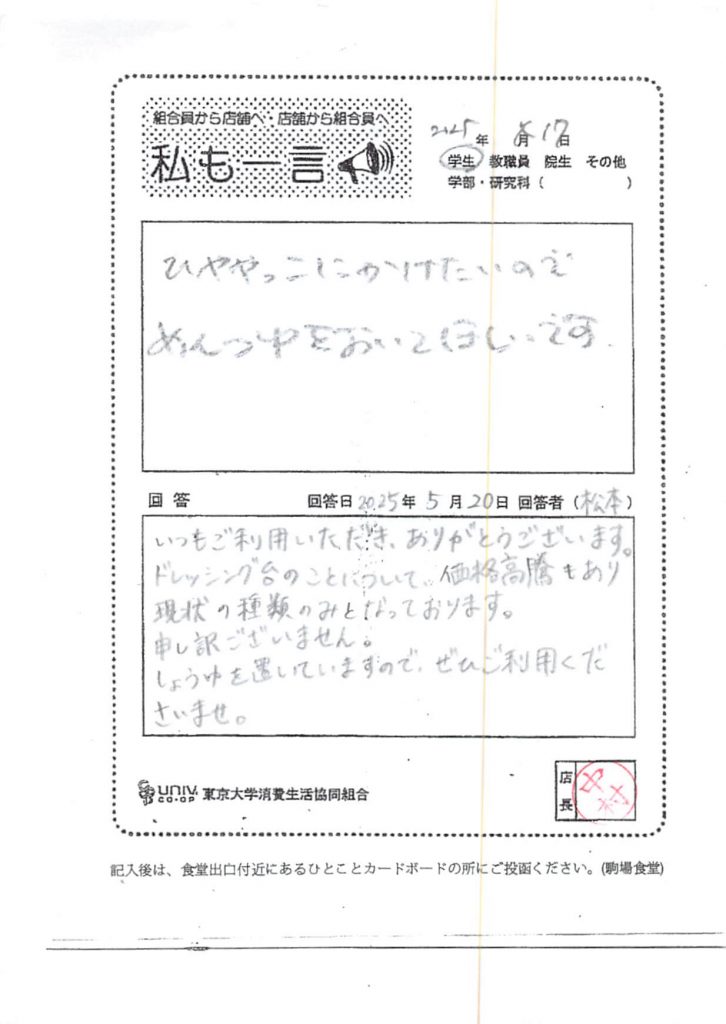 組合員から店舗へ・店舗から組合員へ
私も一言
2025年 5月17日
学生 教職員 院生 その他
学部・研究科 ( )
ひややっこにかけたいので
めんつゆをおいてほしいです.
回答 回答日 2025年 5月20日 回答者 (松本)
いつもご利用いただき、ありがとうございます。
ドレッシング台のことについて、価格高騰もあり
現状の種類のみとなっております。
申し訳ございません。
しょうゆを置いていますので、ぜひご利用くだ
さいませ。
UNIV. CO-OP 東京大学消費生活協同組合
店長
記入後は、食堂出口付近にあるひとことカードボードの所にご投函ください。(駒場食堂)